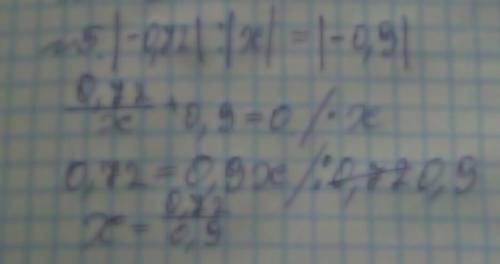 №5. |-0,72| : |x| = |-0,9|
0,72/x + 0,9 = 0 / · x
0,72 = 0,9x / : 0,9
x = 0,72/0,9